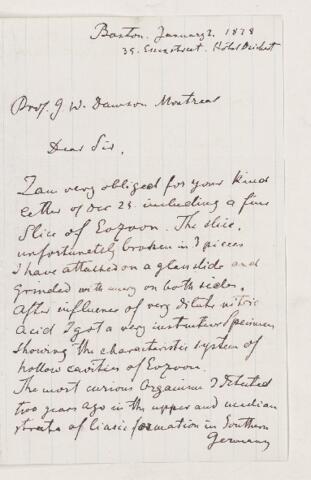 Boston. January 2. 1878
39. Essex street. Hôtel
Prof. J W. Dawson Montreal
Dear Sir,
I am very obliged for your kind
letter of Dec 25. including a fine
Slice of Eozoon. The slice,
unfortunately broken in 3 pieces
I have attached on a glasslide and
grinded with emery on both sides.
After influence of very dilute nitric
Acid I got a very instructive Specimen
showing the characteristic system of
hollow cavities of Eozoon.
The most curious Organism I detected
two years ago in the upper and median
strata of liasic formation in Southern
Germany